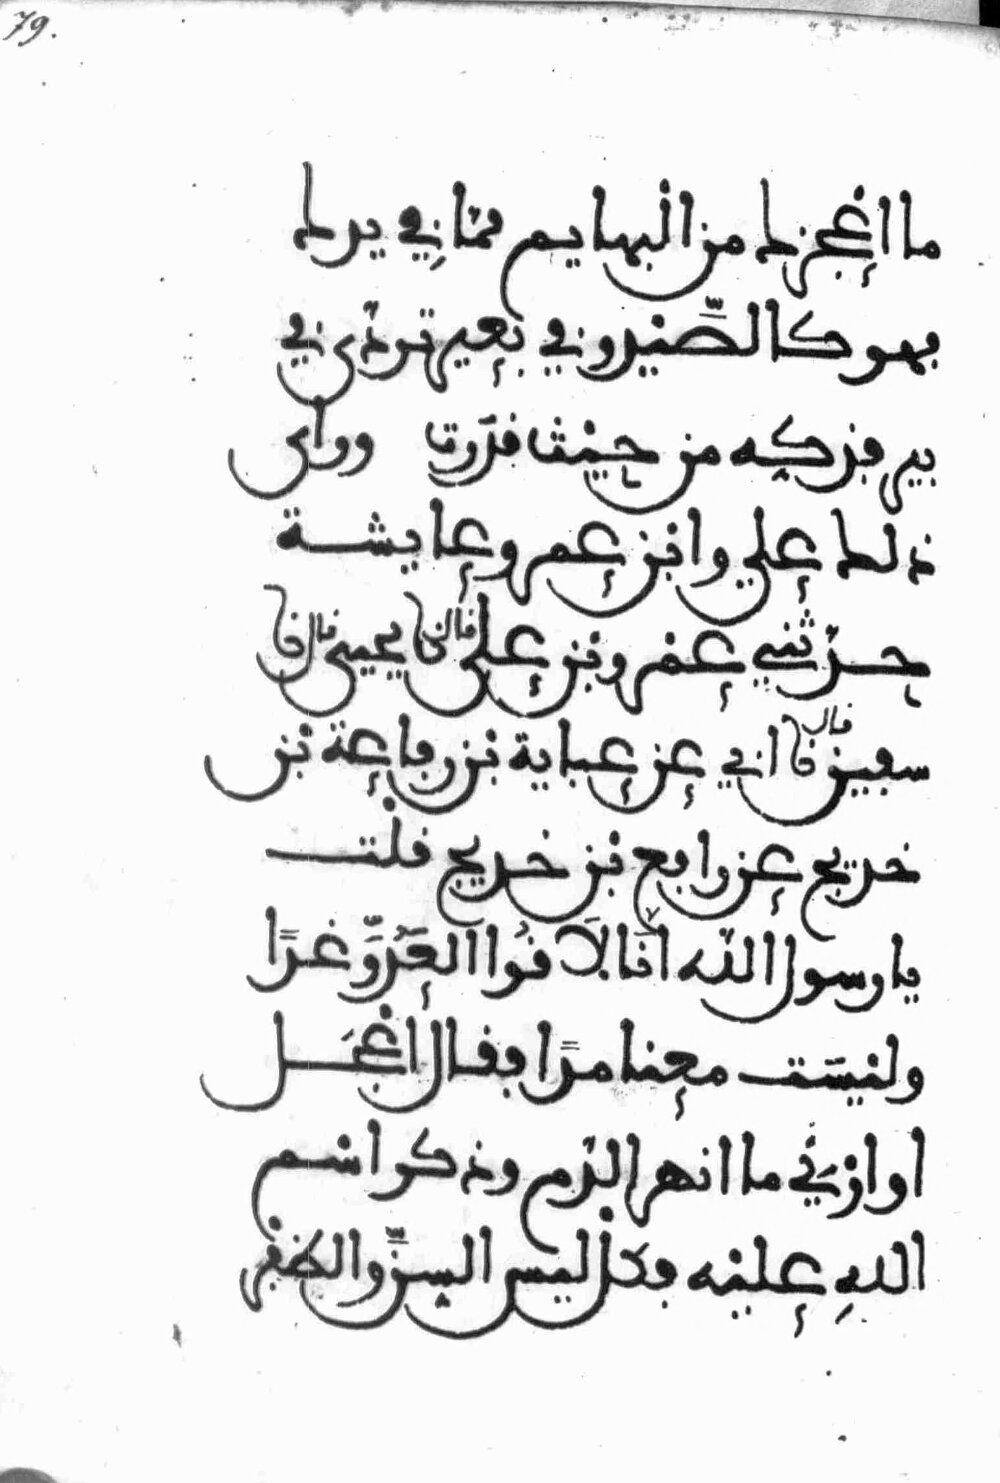 79.
ما اعجزك من البهايم مما في يديك
فهو كالصيد وفي بعير تردى في
بير فذكه من حيث قدرت وراى
ذلك علي وابن عمر وعايشة
حدثني عمرو بن علي قال نا يحيى قال نا
سفين قال نا ابي عن عباية بن رفاعة بن
خديج عن رافع بن خديج قلت
يا رسول الله انا لاقوا العدو غدًا
وليست معنا مدًا فقال اعجل
او ارني ما انهر الدم وذكر اسم
الله عليه فكل ليس السن والظفر